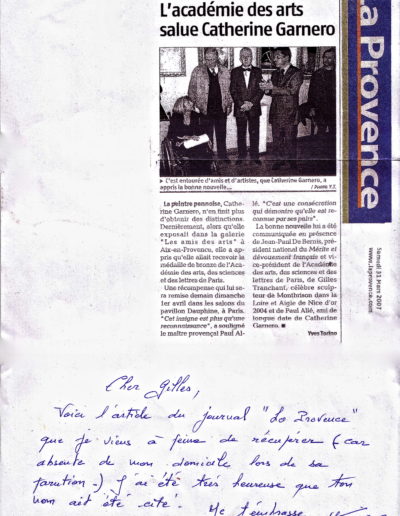 L'académie des arts
salue Catherine Garnero
La Provence
Samedi 31 Mars 2007
www.laprovence.com
▸ C'est entourée d'amis et d'artistes, que Catherine Garnero, a
appris la bonne nouvelle...
/ Photo Y.T.
La peintre pennoise, Cathe-
rine Garnero, n'en finit plus
d'obtenir des distinctions.
Dernièrement, alors qu'elle
exposait dans la galerie
"Les amis des arts" à
Aix-en-Provence, elle a ap-
pris qu'elle allait recevoir la
médaille de bronze de l'Aca-
démie des arts, des sciences
et des lettres de Paris.
Une récompense qui lui se-
ra remise demain dimanche
1er avril dans les salons du
pavillon Dauphine, à Paris.
"Cet insigne est plus qu'une
reconnaissance", a souligné
le maître provençal Paul Al-
lé. "C'est une consécration
qui démontre qu'elle est re-
connue par ses pairs".
La bonne nouvelle lui a été
communiquée en présence
de Jean-Paul De Bernis, pré-
sident national du Mérite et
dévouement français et vi-
ce-président de l'Académie
des arts, des sciences et
des lettres de Paris, de Gilles
Tranchant, célèbre sculp-
teur de Monthrison dans la
Loire et Aigle de Nice d'or
2004 et de Paul Allé, ami de
longue date de Catherine
Garnero. ■
Yves Torino
Cher Gilles,
Voici l'article du journal "La Provence"
que je viens à peine de récupérer (car
absente de mon domicile lors de sa
parution.) J'ai été très heureuse que ton
nom ait été cité. Je t'embrasse